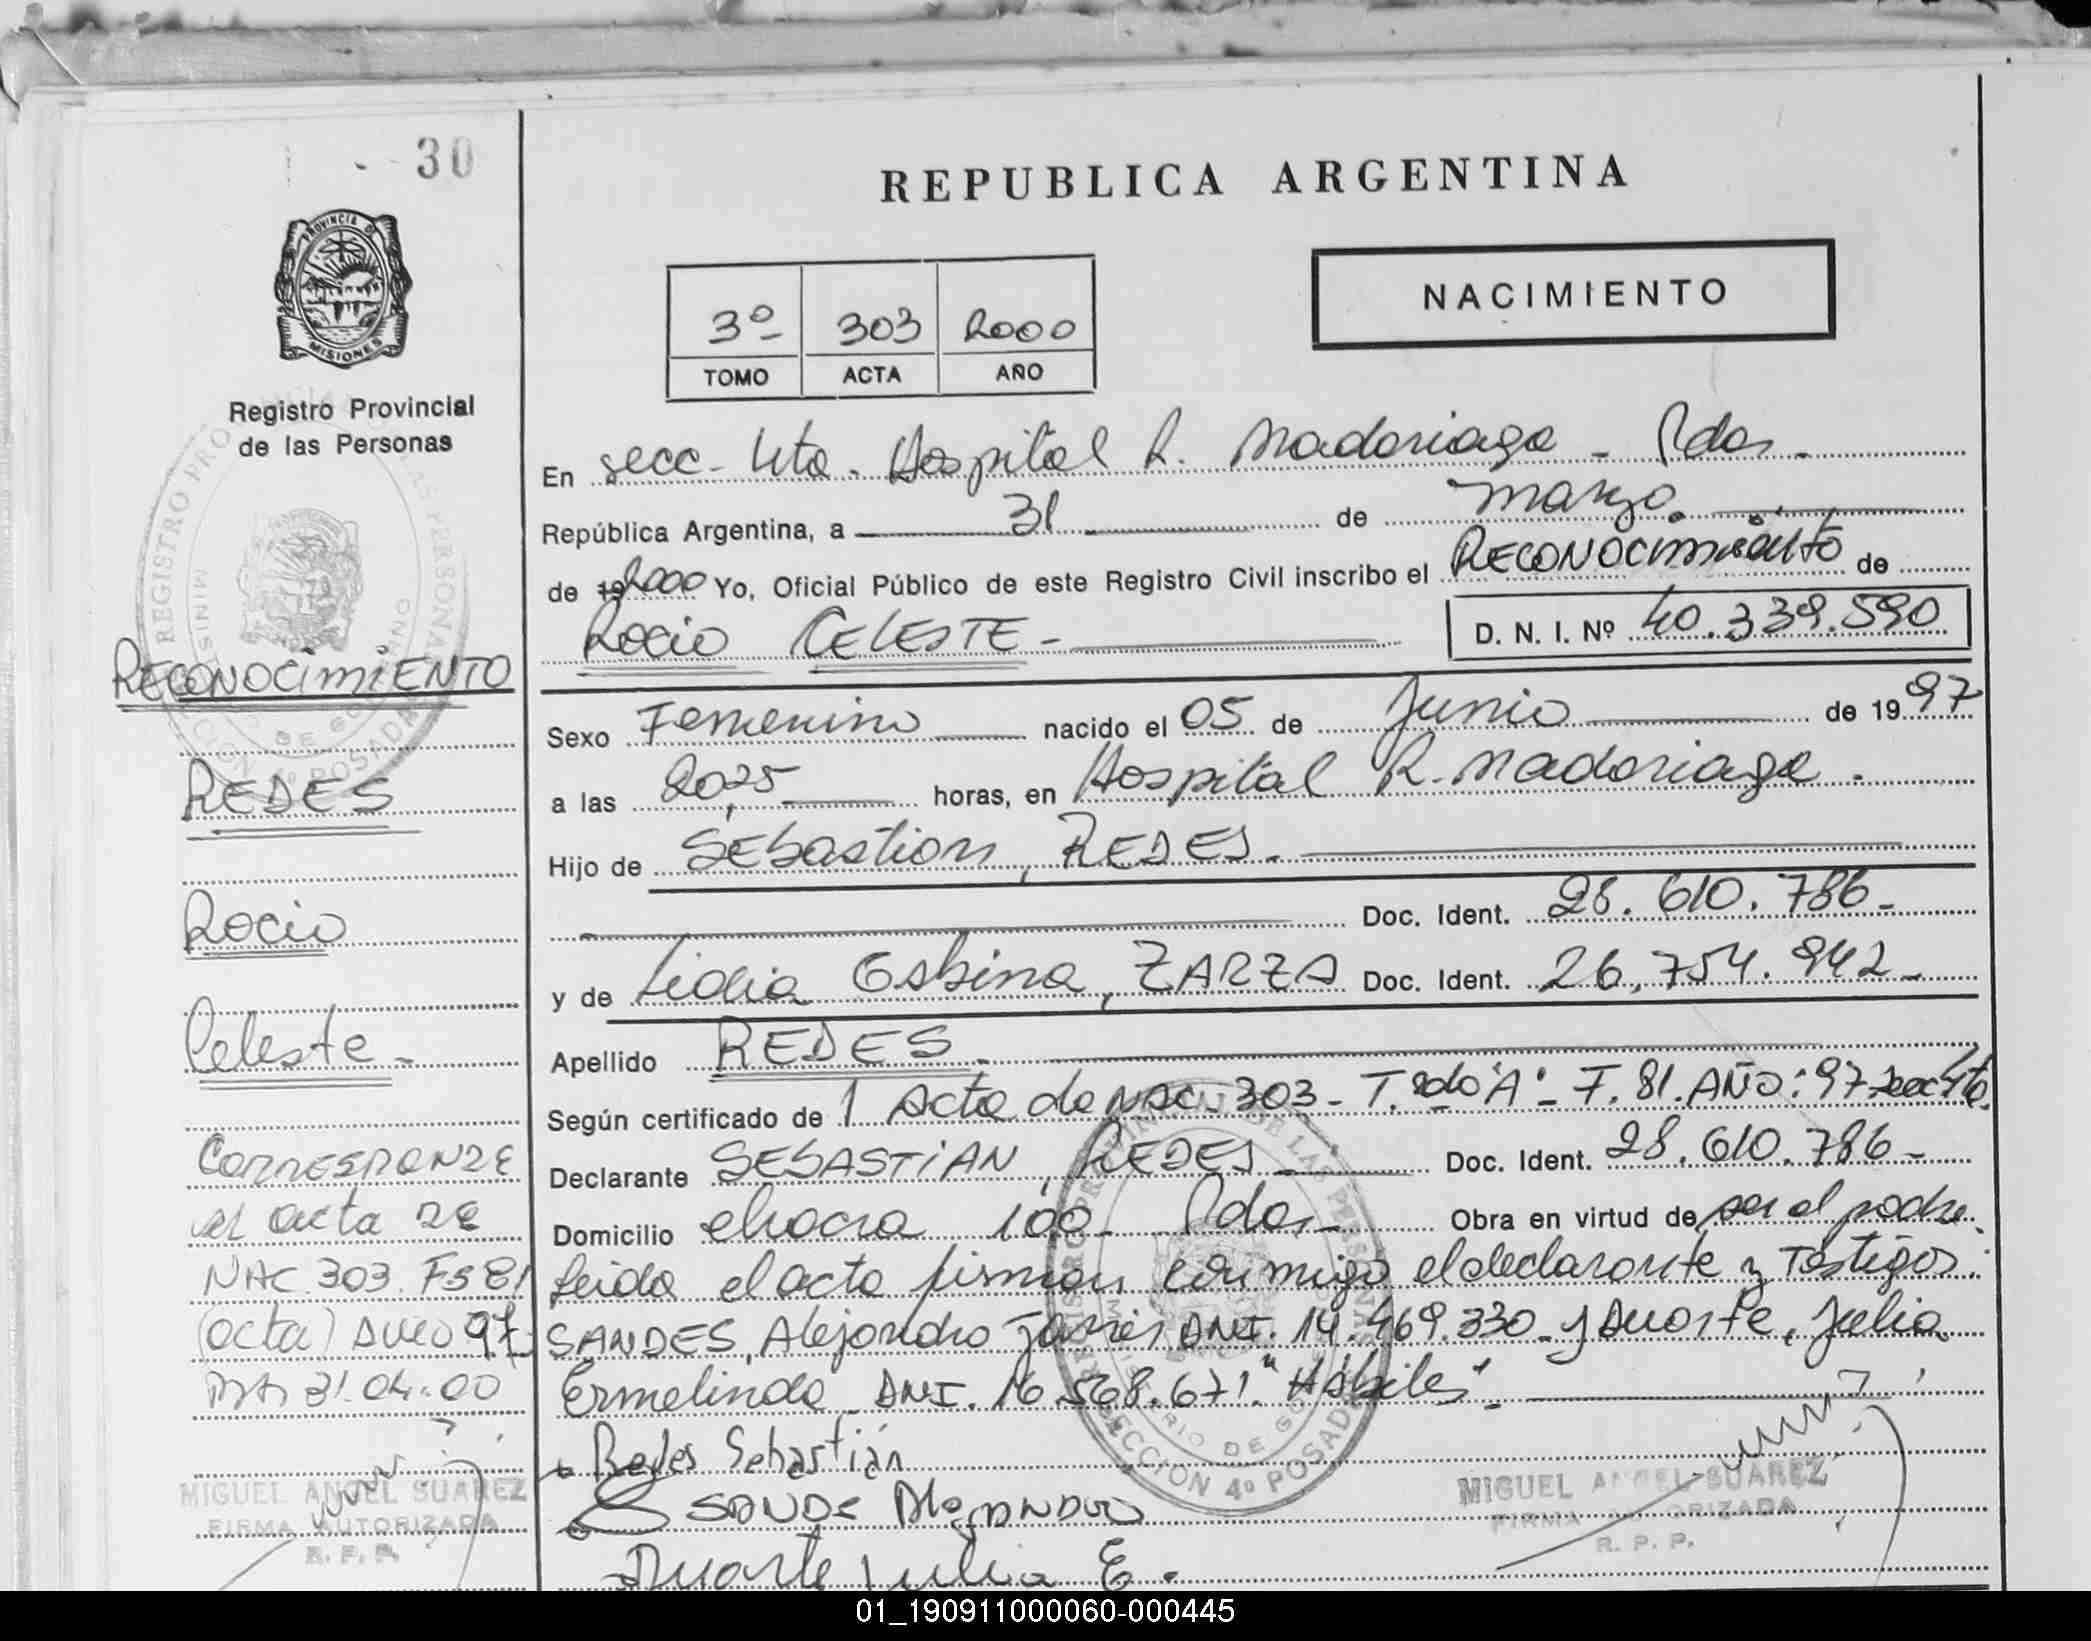 - 30
PROVINCIA D
MISIONES
Registro Provincial
de las Personas
RECONOCIMIENTO
REDES
Rocio
Celeste -
CORRESPONDE
al acta de
NAC. 303. Fs 81
(acta) AÑO 97
Pdas 31.04.00
MIGUEL ANGEL SUAREZ
FIRMA AUTORIZADA
R. P. P.
REPUBLICA ARGENTINA
NACIMIENTO
3º 303 2000
TOMO ACTA AÑO
En secc- 4ta. Hospital R. Madariaga - Pdas -
República Argentina, a 31 de marzo.
de 192000 Yo, Oficial Público de este Registro Civil inscribo el RECONOCIMIENTO de
Rocio CELESTE - D. N. I. Nº 40.339.590
Sexo Femenino nacido el 05 de Junio de 1997
a las 20,25 horas, en Hospital R. Madariaga -
Hijo de SEbastian, REDES.
Doc. Ident. 28. 610. 786 -
y de Lidia Gabina, ZARZA Doc. Ident. 26.754. 942 -
Apellido REDES -
Según certificado de 1 Acta de NAC. 303 - T. 2do "A" - F. 81. AÑO: 97 secc 4ta.
Declarante SEBASTIAN, REDES - Doc. Ident. 28. 610. 786 -
Domicilio chacra 100 - Pdas - Obra en virtud de ser el padre.
Leida el acta firman conmigo el declarante y Testigos:
SANDES, Alejandro Javier DNI. 14.469.330 - y Duarte, Julia
Ermelinda DNI. 16.568.671. "Hábiles" -
Redes Sebastián
SANDE Alejandro
Duarte Julia E.
MIGUEL ANGEL SUAREZ
FIRMA AUTORIZADA
R. P. P.
REGISTRO PROVINCIAL DE LAS PERSONAS
MINISTERIO DE GOBIERNO
SECCION 4º POSADAS
01_190911000060-000445